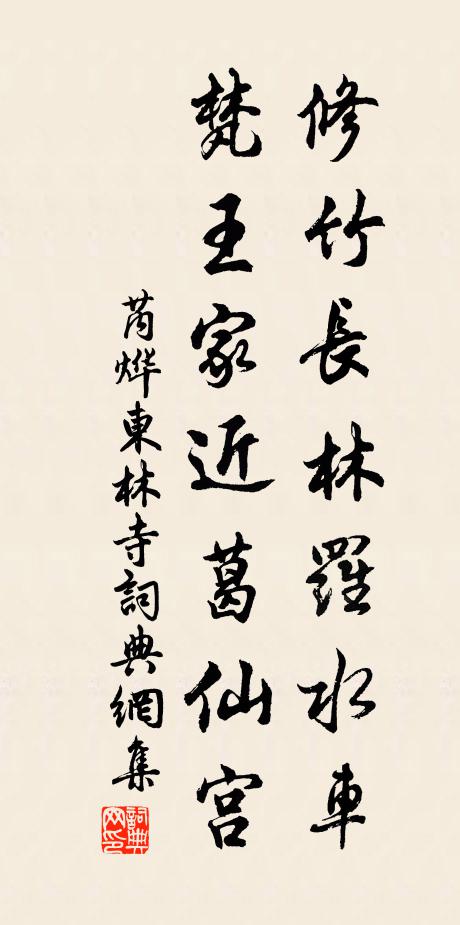 修竹長林羅水東
梵王家近葛仙宮
芮燁東林寺詞典網集
詞典
网印